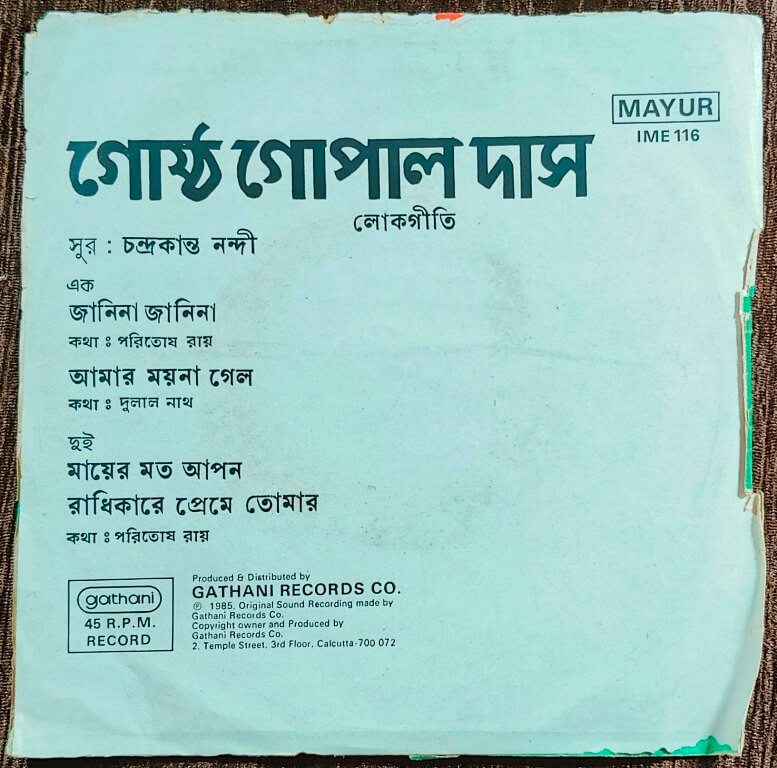 MAYUR
IME 116
গোষ্ঠ গোপাল দাস
লোকগীতি
সুর : চন্দ্রকান্ত নন্দী
এক
জানিনা জানিনা
কথা ঃ পরিতোষ রায়
আমার ময়না গেল
কথা ঃ দুলাল নাথ
দুই
মায়ের মত আপন
রাধিকারে প্রেমে তোমার
কথা ঃ পরিতোষ রায়
gathani
45 R.P.M.
RECORD
Produced & Distributed by
GATHANI RECORDS CO.
℗ 1985, Original Sound Recording made by
Gathani Records Co.
Copyright owner and Produced by
Gathani Records Co.
2, Temple Street, 3rd Floor, Calcutta-700 072